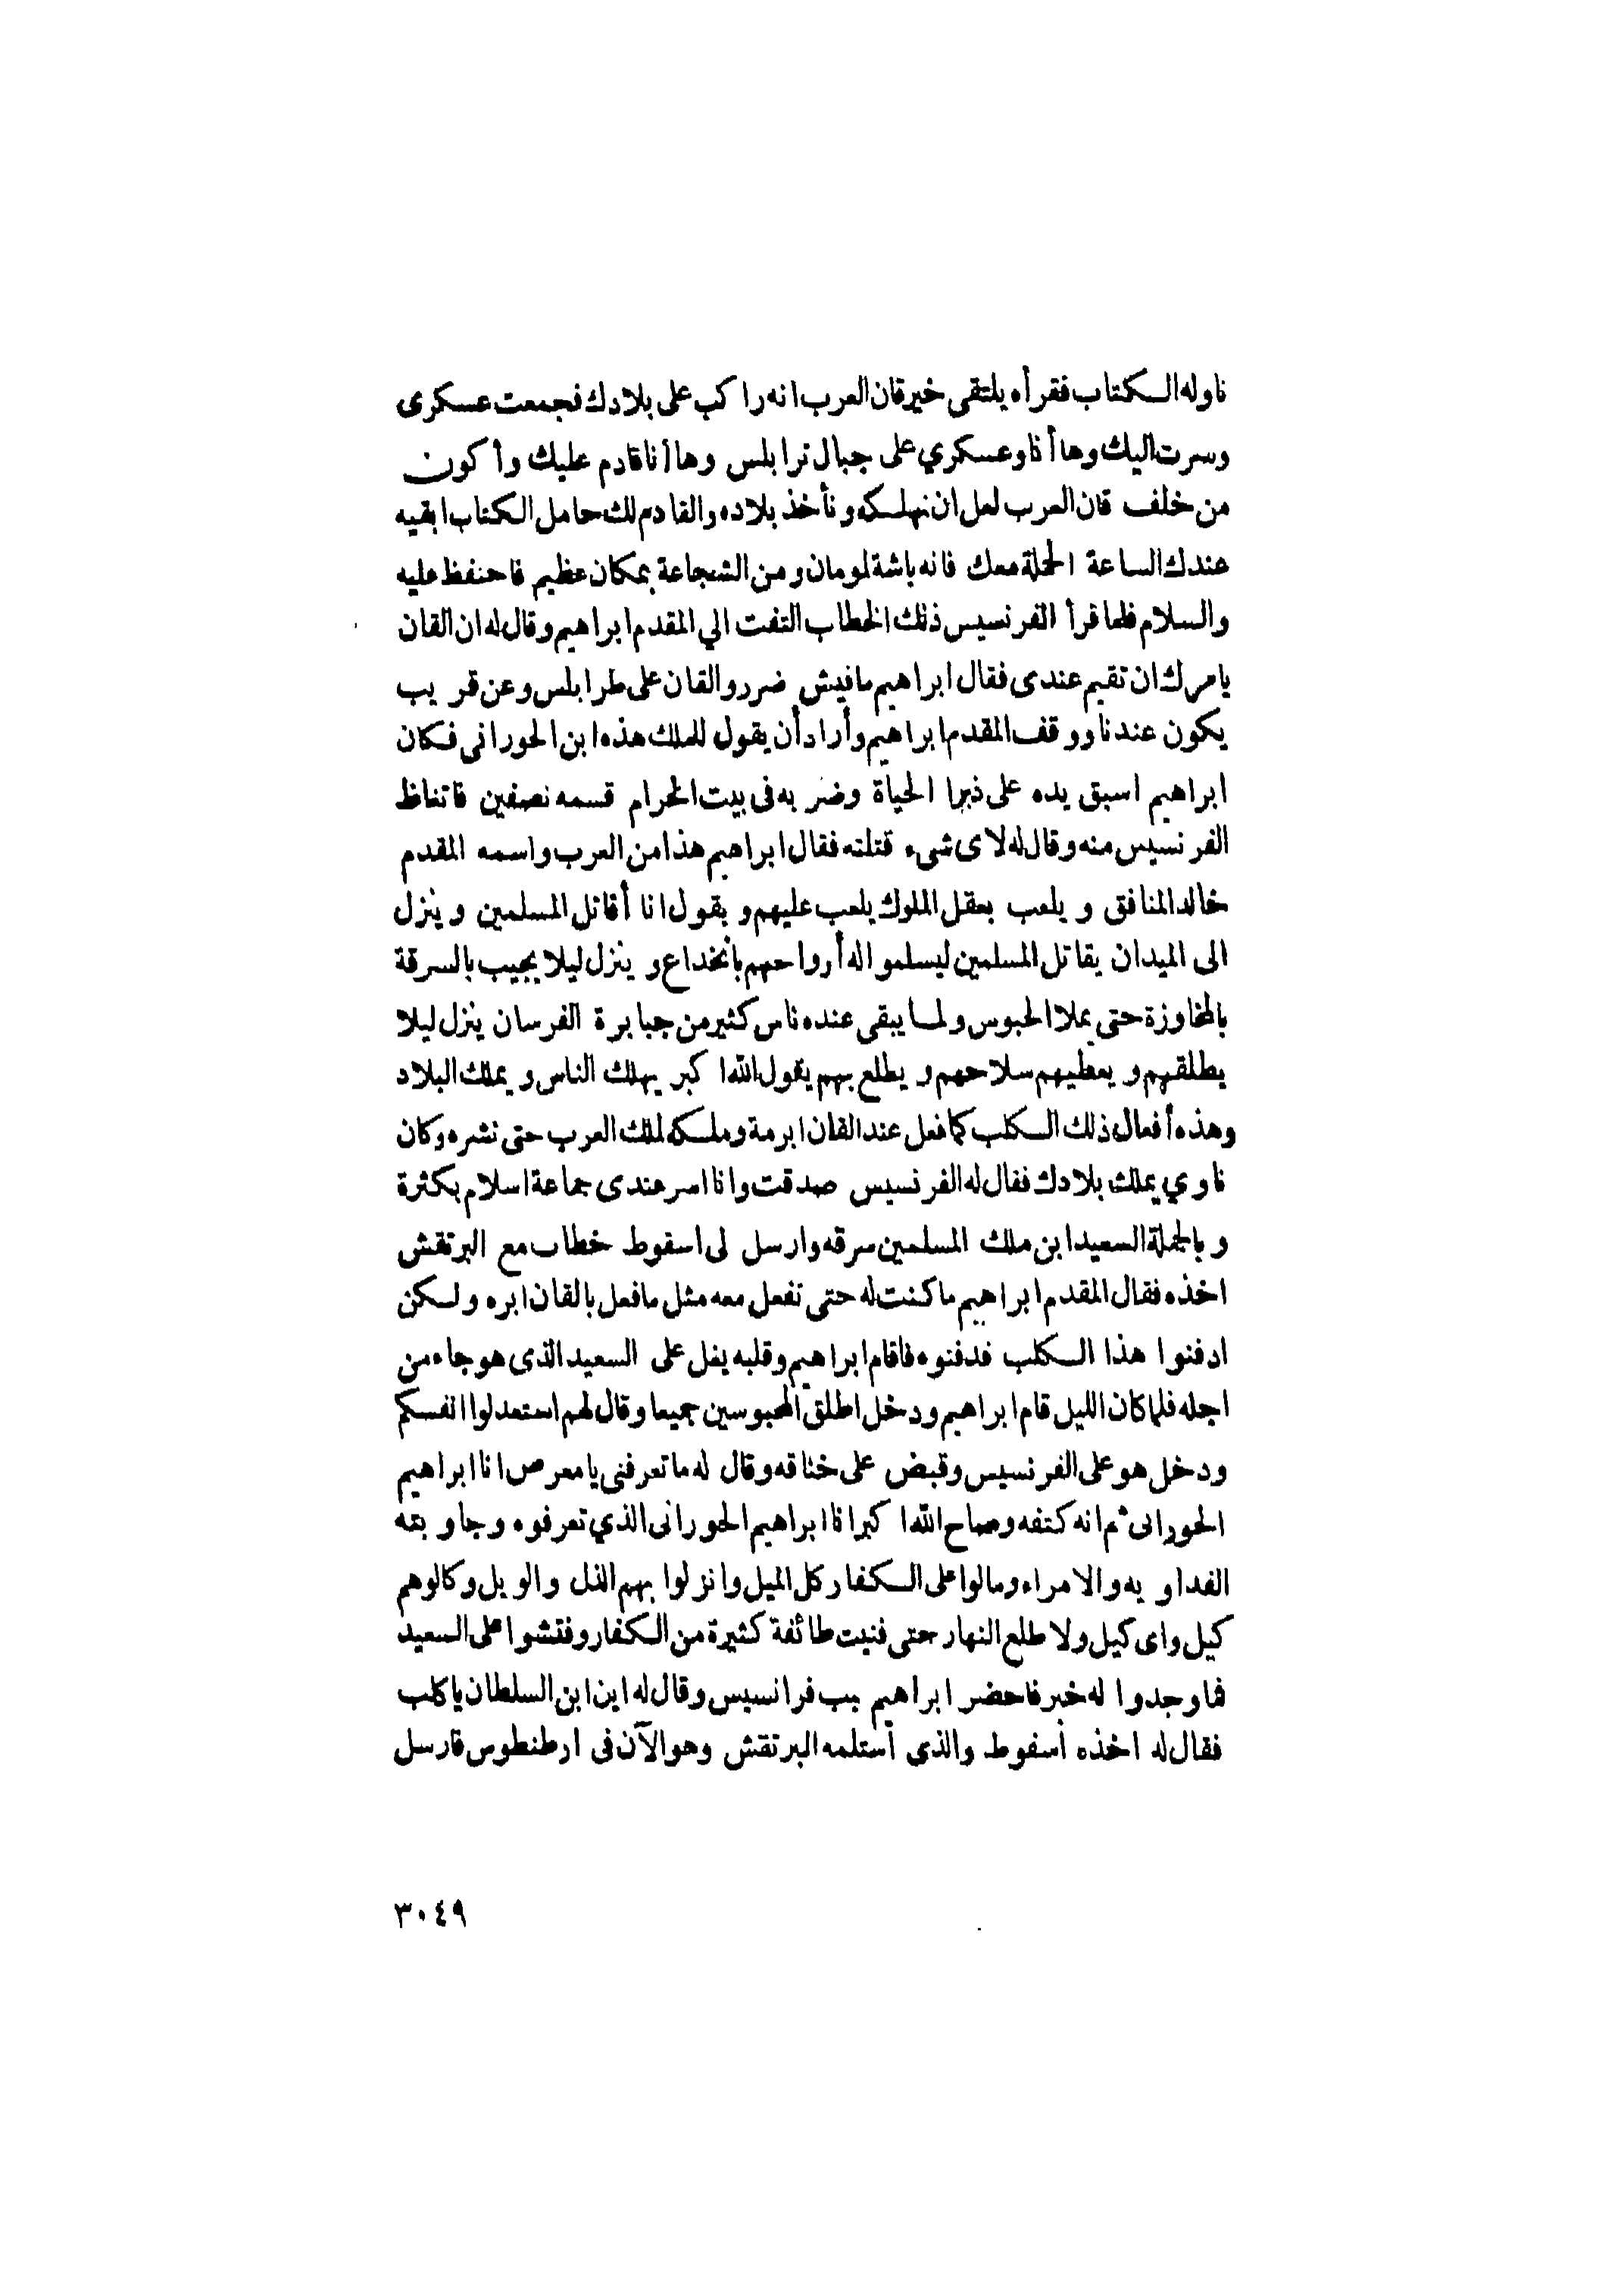 ناوله الكتاب فقرأه يلتقى خيرقان العرب انه راكب على بلادك فجمعت عسكرى
وسرت اليك وها أنا وعسكري على جبال ترابلس وها أنا قادم عليك وأكون
من خلف قان العرب لعل ان نهلكه ونأخذ بلاده والقادم لك حامل الكتاب ابقيه
عندك الساعة الحملة معك فانه باشة لومان ومن الشجاعة بمكان عظيم فاحنفظ عليه
والسلام فلما قرأ الفرنسيس ذلك الخطاب التفت الي المقدم ابراهيم وقال له ان القان
يامرك ان تقيم عندى فقال ابراهيم مافيش ضرر والقان على طرابلس وعن قريب
يكون عندنا ووقف المقدم ابراهيم وأراد أن يقول للملك هذه ابن الحورانى فكان
ابراهيم اسبق يده على ذبها الحياة وضربه فى بيت الحرام قسمه نصفين فاتغاظ
الفرنسيس منه وقال له لاى شىء قتلته فقال ابراهيم هذا من العرب واسمه المقدم
خالد المنافق و يلعب بعقل الملوك يلعب عليهم و يقول انا أقاتل المسلمين وينزل
الى الميدان يقاتل المسلمين ليسلموا له أرواحهم بانخداع و ينزل ليلا يجيب بالسرقة
بالمخاوزة حتى يملا الحبوس ولما يبقى عنده ناس كثير من جبابرة الفرسان ينزل ليلا
يطلقهم و يعطيهم سلاحهم و يطلع بهم يقول الله اكبر يهلك الناس و يملك البلاد
وهذه أفعال ذلك الكلب كما فعل عند القان ابرمة وملكه لملك العرب حتى نشره وكان
ناوي يملك بلادك فقال له الفرنسيس صدقت وانا اسر عندى جماعة اسلام بكثرة
و بالجملة السعيد ابن ملك المسلمين سرقه وارسل لى اسفوط خطاب مع البرتقش
اخذه فقال المقدم ابراهيم ما كنت له حتى تفعل معه مثل مافعل بالقان ابره ولكن
ادفنوا هذا الكلب فدفنوه فاقام ابراهيم وقلبه يغل على السعيد الذى هو جاء من
اجله فلما كان الليل قام ابراهيم ودخل اطلق المحبوسين جميعا وقال لهم استعدلوا انفسكم
ودخل هو على الفرنسيس وقبض على خناقه وقال له ماتعرفنى يا معرص انا ابراهيم
الحورانى ثم انه كتفه وصاح الله اكبر انا ابراهيم الحورانى الذي تعرفوه وجاوبته
الفداويه والامراء ومالوا على الكفار كل الميل وانزلوا بهم الذل والويل وكالوهم
كيل واى كيل ولا طلع النهار حتى فنيت طائفة كثيرة من الكفار وفتشوا على السعيد
فما وجدوا له خبر فاحضر ابراهيم بب فرانسيس وقال له اين ابن السلطان يا كلب
فقال له اخذه أسفوط والذى أستلمه البرتقش وهو الآن فى ارطنطوس فارسل
٣٠٤٩